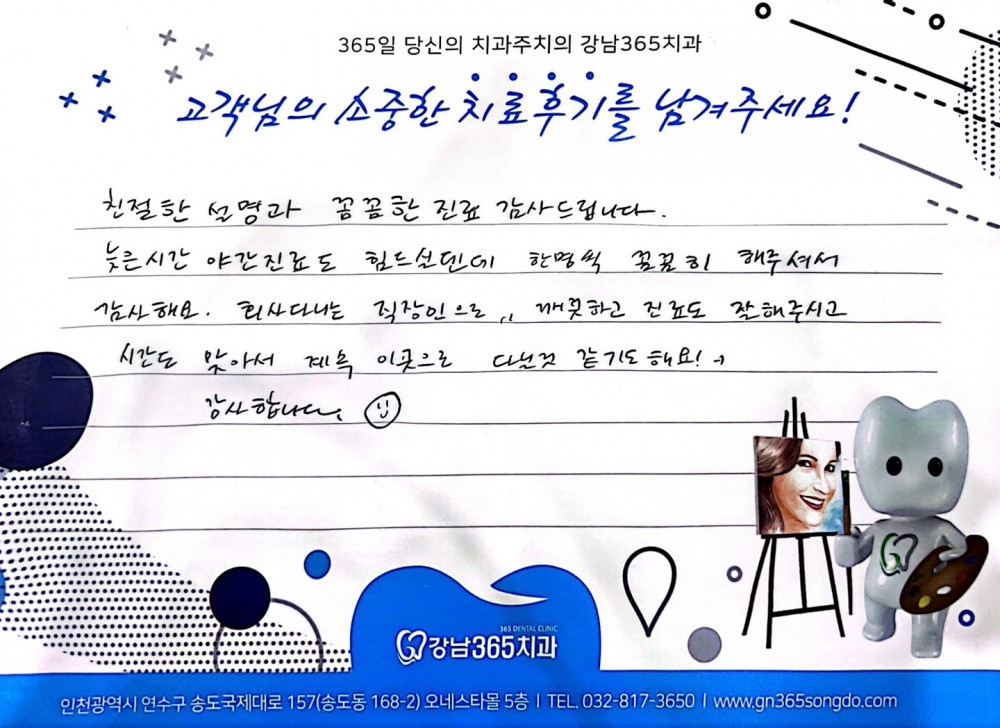 365일 당신의 치과주치의 강남365치과
고객님의 소중한 치료후기를 남겨주세요!
친절한 설명과 꼼꼼한 진료 감사드립니다.
늦은시간 야간진료도 힘드실텐데 한명씩 꼼꼼히 해주셔서
감사해요. 회사다니는 직장인으로,, 깨끗하고 진료도 잘해주시고
시간도 맞아서 계속 이곳으로 다닐것 같기도해요!
감사합니다.
365 DENTAL CLINIC
강남365치과
인천광역시 연수구 송도국제대로 157(송도동 168-2) 오네스타몰 5층 | TEL. 032-817-3650 | www.gn365songdo.com